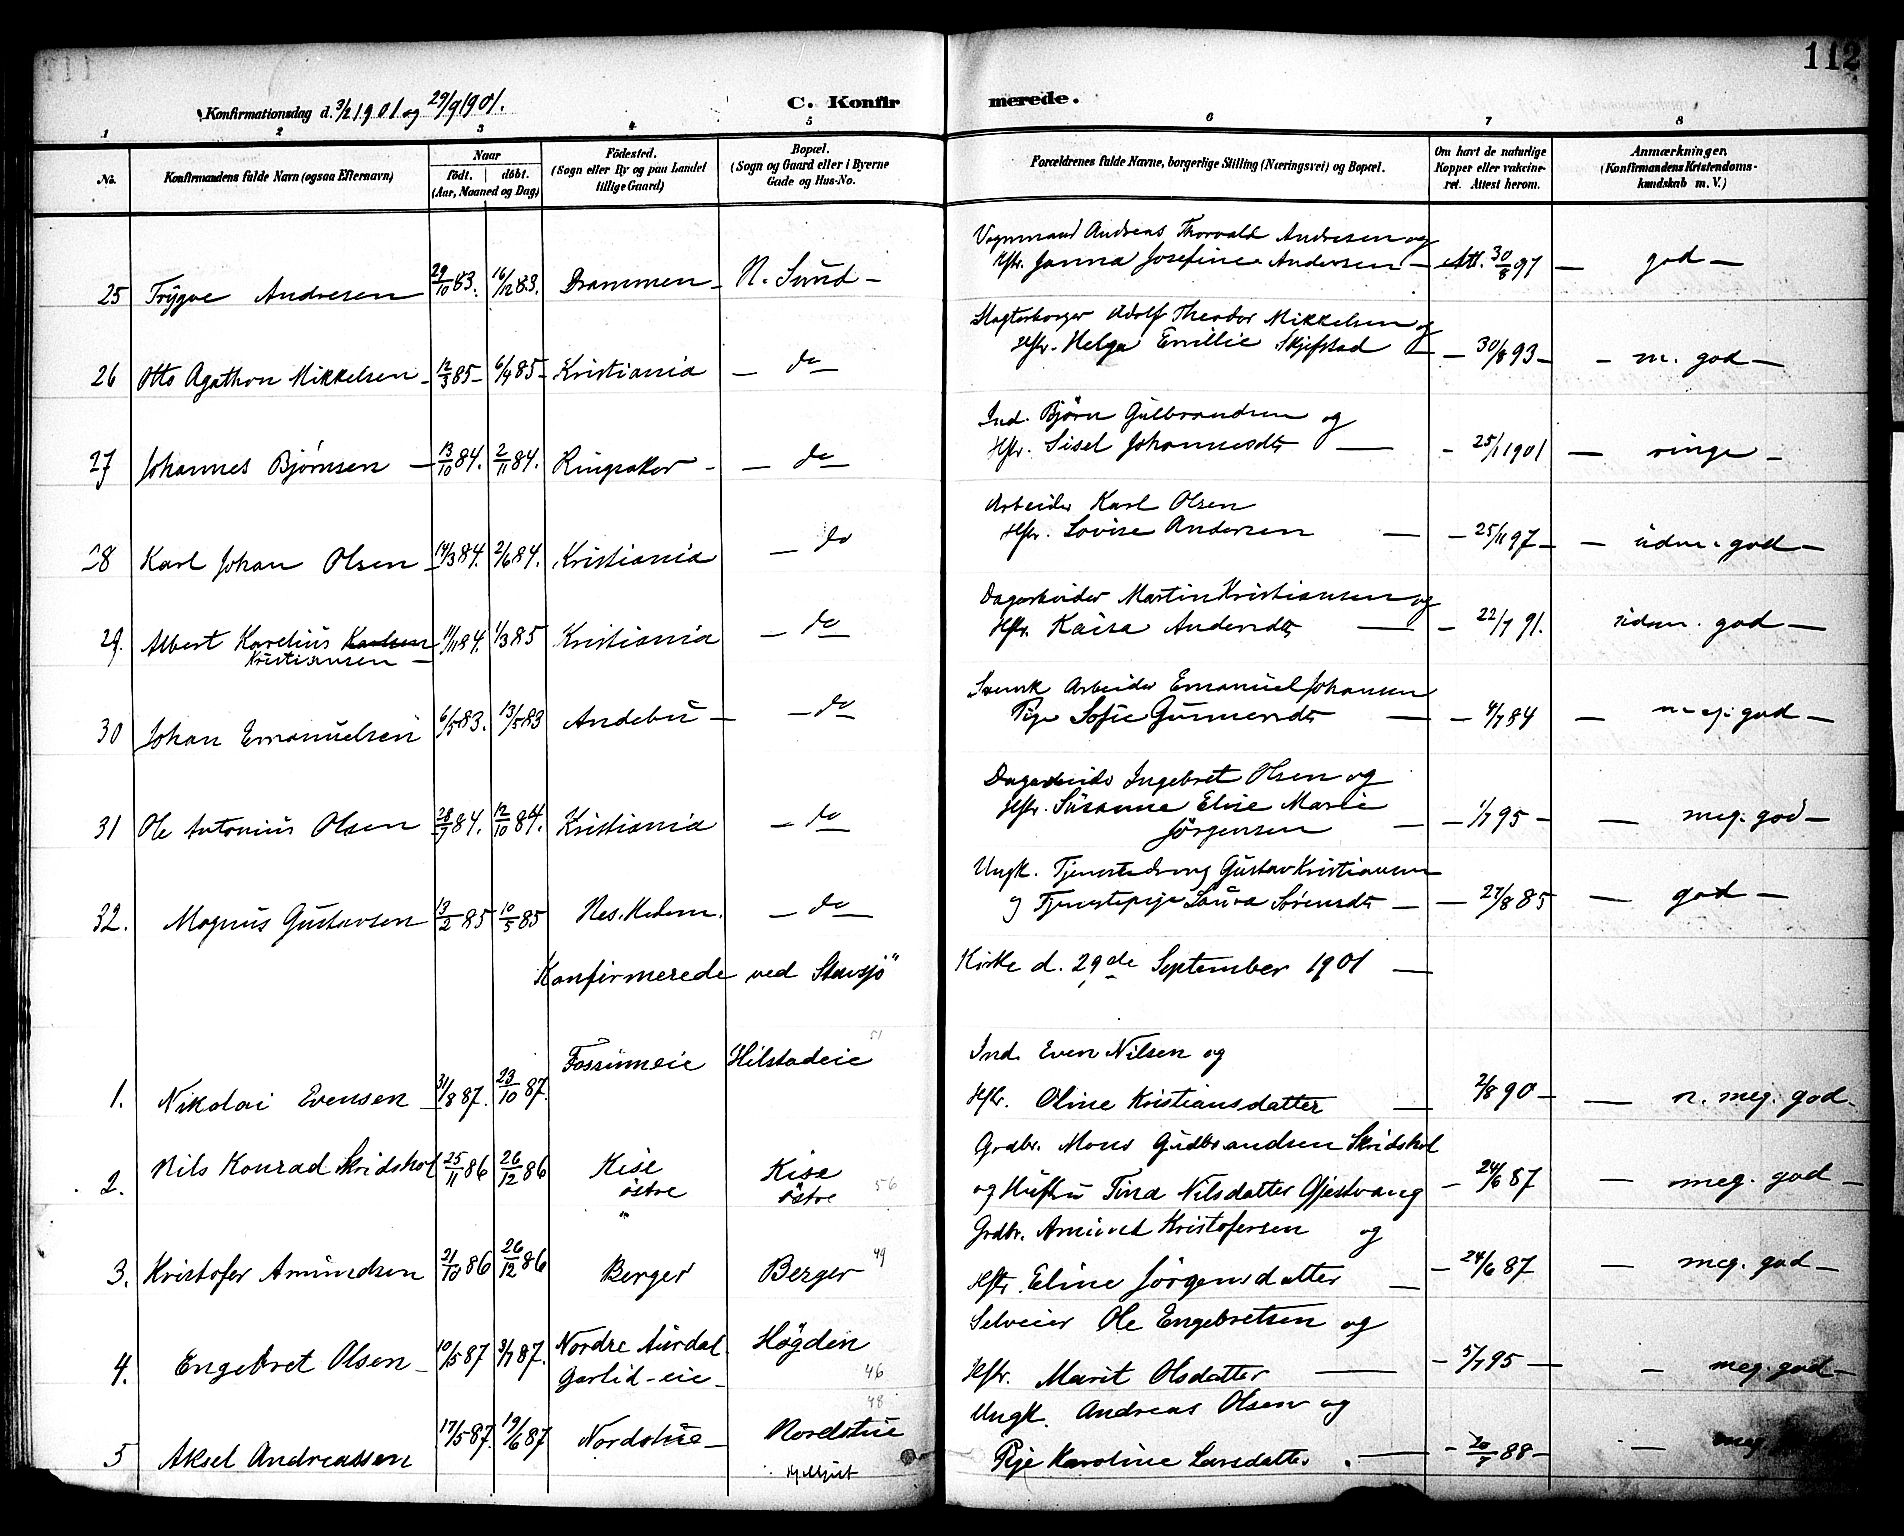 112
Konfirmationsdag d. 3/2 1901 og 29/9 1901.
C. Konfirmerede.
1 2 3 4 5 6 7 8
No.
Konfirmandens fulde Navn (ogsaa Efternavn)
Naar
födt. döbt.
(Aar, Maaned og Dag)
Födested.
(Sogn eller By og paa Landet
tillige Gaard)
Bopæl.
(Sogn og Gaard eller i Byerne
Gade og Hus-No.
Forældrenes fulde Navne, borgerlige Stilling (Næringsvei) og Bopæl.
Om havt de naturlige
Kopper eller vakcine-
ret. Attest herom.
Anmærkninger.
(Konfirmandens Kristendoms-
kundskab m. V.)
Vognmand Andreas Thorvald Andresen og
25 Trygve Andresen 29/10 83. 16/12 83. Drammen – N. Sund – Hstr. Janna Josefine Andersen – Att. 30/8 97 – god –
Slagterborger Adolf Theodor Mikkelsen og
26 Otto Agathon Mikkelsen – 12/3 85 – 6/4 85 – Kristiania – do – Hstr. Helga Emilie Skjefstad – 30/8 93 – m. god –
Ind. Björn Gulbrandsen og
27 Johannes Bjørnsen – 13/10 84. 2/11 84. Ringsaker – – do – Hstr. Sisel Johannesdtr – – 25/1 1901 – ringe –
Arbeider Karl Olsen
28 Karl Johan Olsen – 14/3 84. 2/6 84. Kristiania – do Hstr. Lovise Andersen – – 25/11 97 – – udm. god –
Dagarbeider Martin Kristiansen og
29. Albert Karelius Karlsen 11/11 84. 1/3 85 Kristiania – do – Hstr. Kaisa Andersdtr – – 22/7 91. udm. god –
Kristiansen –
Svensk Arbeider Emanuel Johansen
30 Johan Emanuelsen 6/5 83. 13/5 83 Andebu – – do – Pige Sofie Gunnersdtr – – 4/7 84 – meg. god –
Dagarbeider Ingebret Olsen og
31 Ole Antonius Olsen 28/7 84. 12/10 84. Kristiania – do – Hstr. Susanne Elise Marie
Jørgensen – – 1/7 95 – – meg. god –
Ungk. Tjenestedreng Gustav Kristiansen
32. Magnus Gustavsen 13/2 85 10/5 85 Nes. Hedem. – do – og Tjenestepige Laura Sørensdtr – – 27/8 85 – god –
Konfirmerede ved Stavsjö" Kirke d. 29de September 1901 –
Fossumeie Hilstadeie 51 Ind. Even Nilsen og
1. Nikolai Evensen – 31/8 87. 23/10 87. Hstr. Oline Kristiansdatter – 2/8 90 – – n. meg. god –
Grdbr. Mons Gudbrandsen Skridshol
2. Nils Konrad Skridshol 25/11 86 26/12 86 Kise Kise
östre östre 56 og Hustru Tina Nilsdatter Gjestvang – 24/6 87 – meg. god –
Grdbr. Amund Kristofersen og
3. Kristofer Amundsen 21/10 86 26/12 86 Berger Berger 49 Hstr. Eline Jørgensdatter – – 24/6 87 – meg. god –
Selveier Ole Engebretsen og
4. Engebret Olsen – 10/5 87 3/7 87. Nordre Aurdal Høgden
Garlid-eie – 46 Hstr. Marit Olsdatter – – 5/7 95 – – meg. god –
48 Ungk. Andreas Olsen og
5 Aksel Andreassen 17/5 87. 19/6 87 Nordstue – Nordstue Pige Karoline Larsdatter. – – 20/7 88 – – meg.